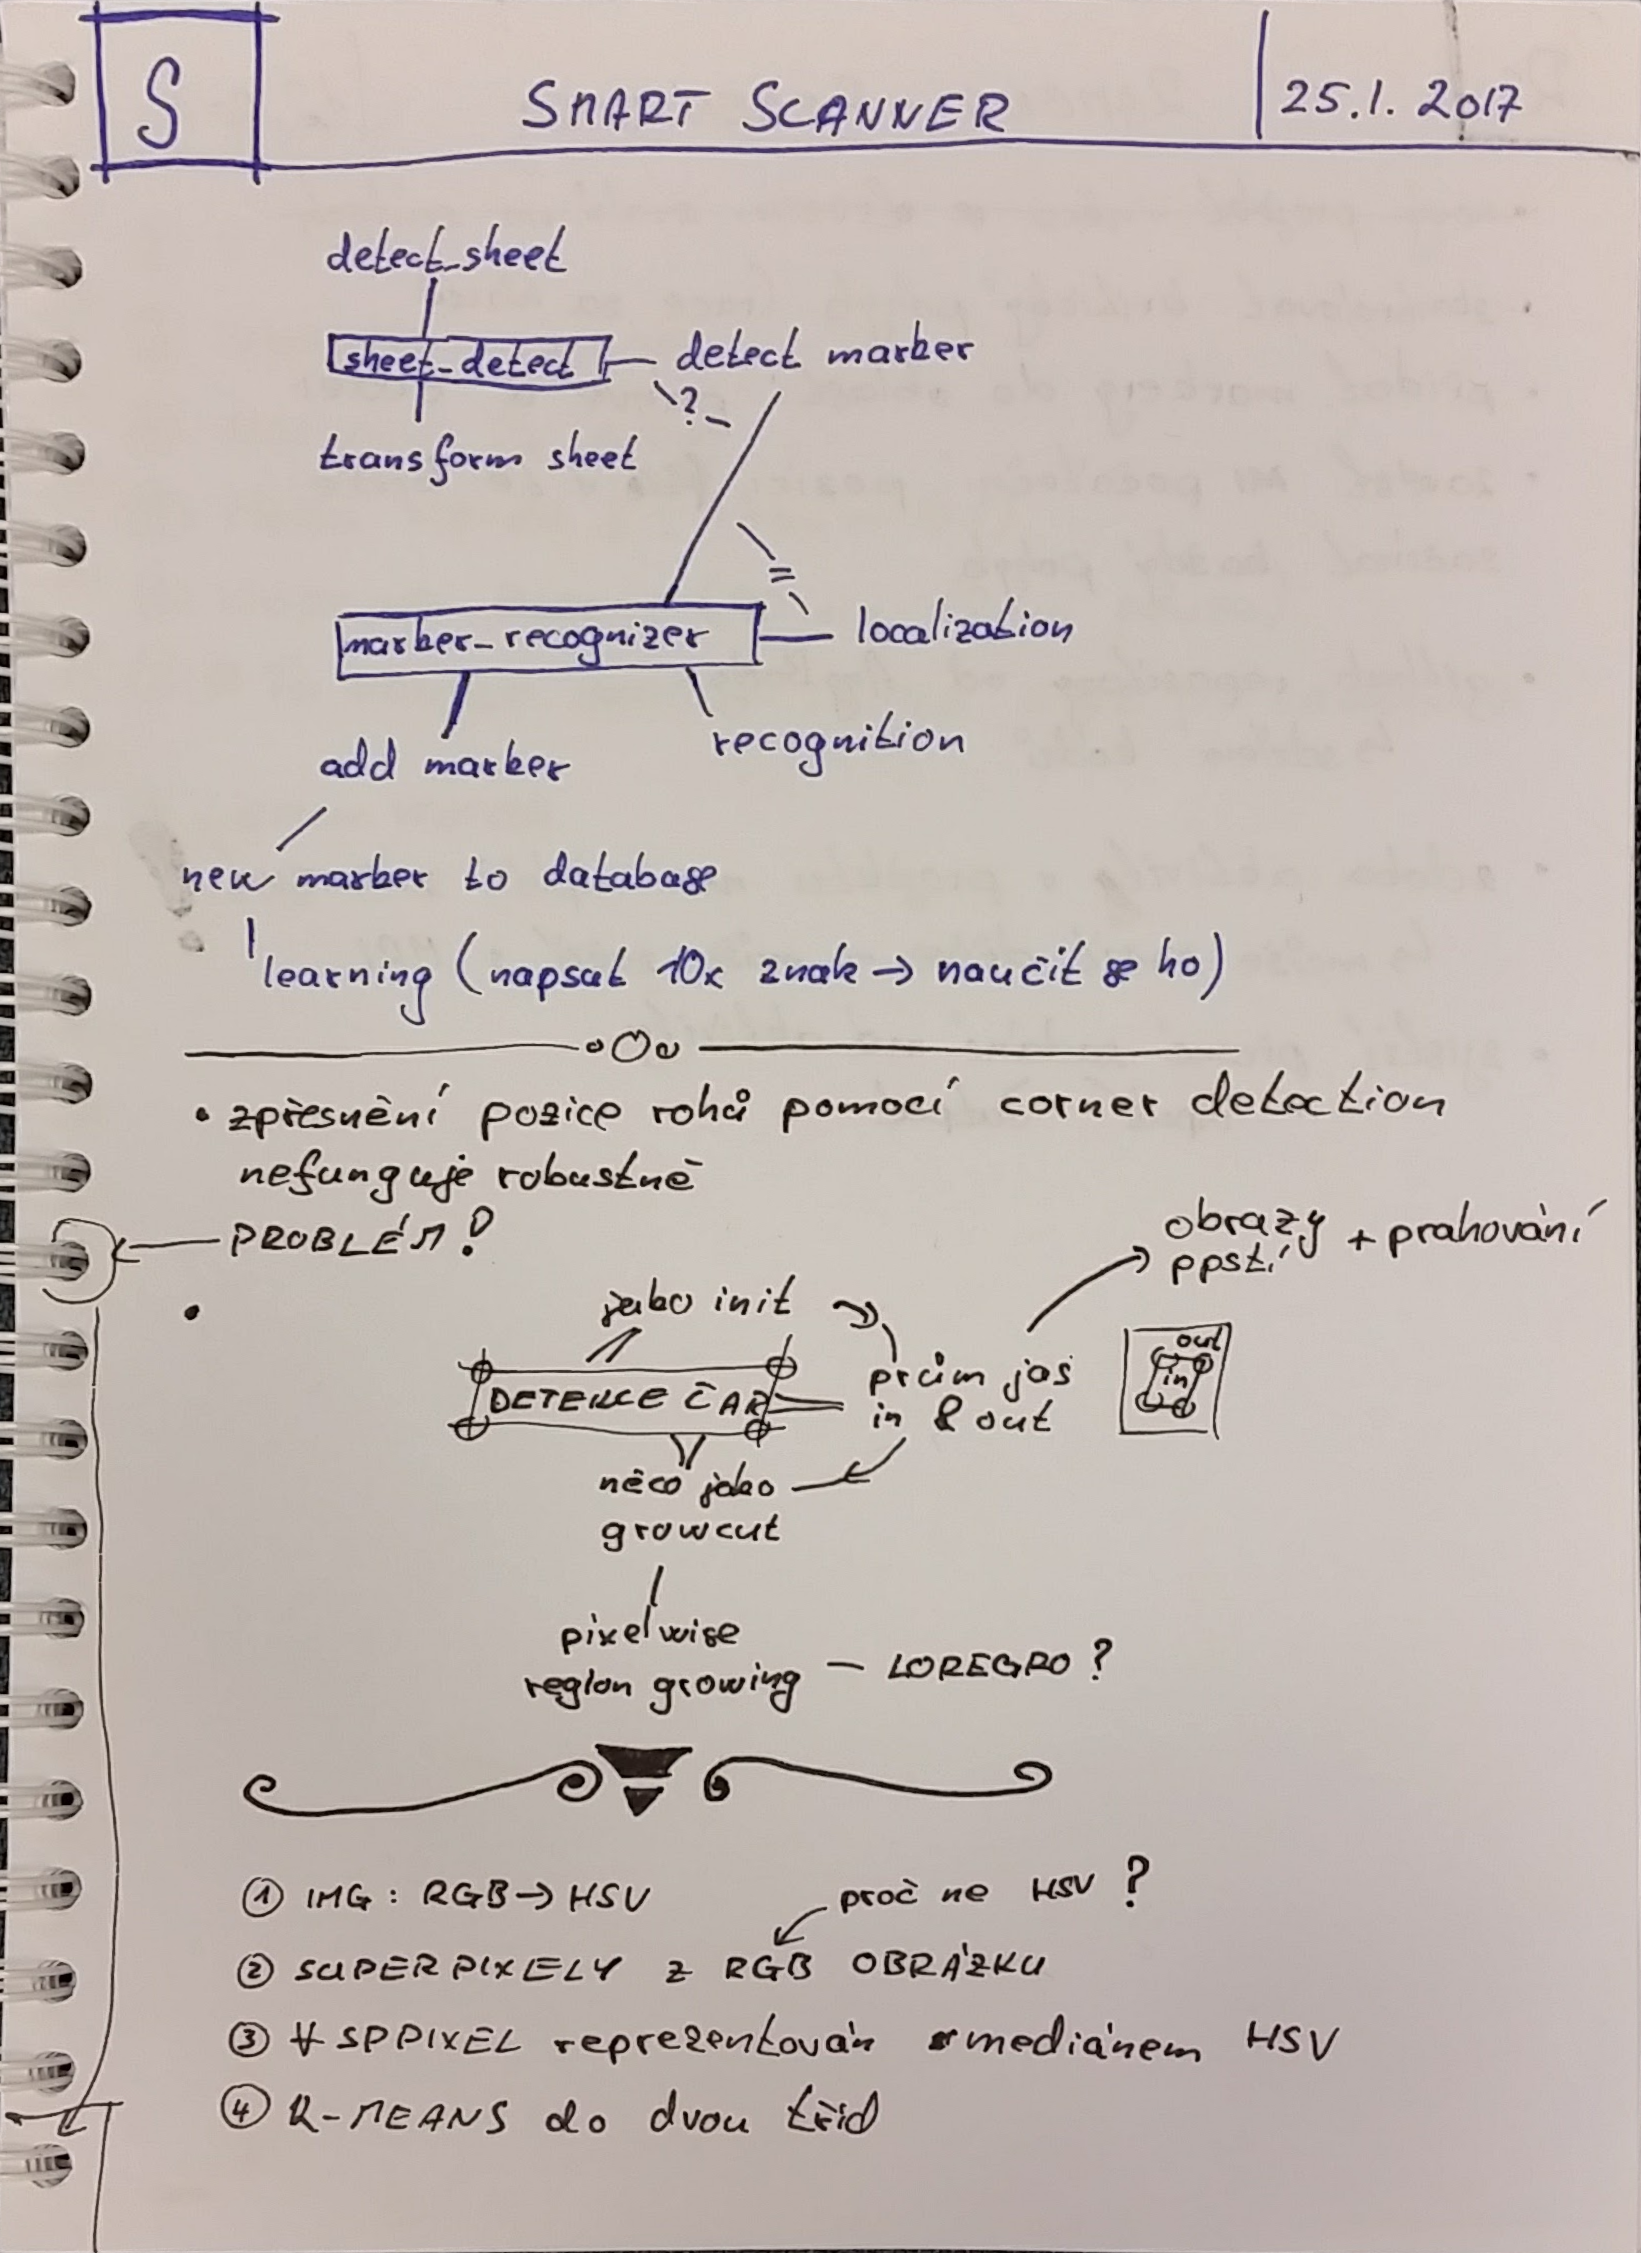 S
SMART SCANNER
25.1. 2017
detect_sheet
sheet_detect
detect marker
?
transform sheet
=
marker_recognizer
localization
add marker
recognition
new marker to database
learning (napsat 10x znak → naučit se ho)
• zpřesnění pozice rohů pomocí corner detection
nefunguje robustně
← PROBLÉM!
obrazy + prahování
ppstí
•
jako init
DETEKCE ČAR
prům jas
in & out
out
in
něco jako
growcut
pixelwise
region growing – LOREGRO ?
① IMG : RGB → HSV
proč ne HSV ?
② SUPERPIXELY Z RGB OBRÁZKU
③ ∀ SPPIXEL reprezentován mediánem HSV
④ K-MEANS do dvou tříd